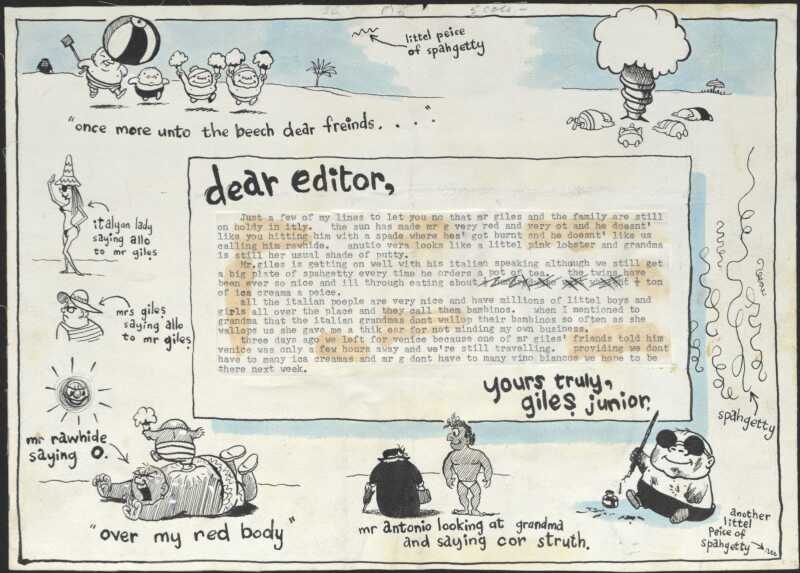 littel peice
of spahgetty
"once more unto the beech dear freinds. . . ."
dear editor,
Just a few of my lines to let you no that mr giles and the family are still
on holdy in itly. the sun has made mr g very red and very ot and he doesnt'
like you hitting him with a spade where hes' got burnt and he doesnt' like us
calling him rawhide. anutie vera looks like a littel pink lobster and grandma
is still her usual shade of putty.
Mr.giles is getting on well with his italian speaking although we still get
a big plate of spahgetty every time he orders a pot of tea. the twins have
been ever so nice and ill through eating about ½ ton
of ice creama a peice.
all the italian poeple are very nice and have millions of littel boys and
girls all over the place and they call them bambinos. when I mentioned to
grandma that the italian grandmas dont wallop their bambinos so often as she
wallops us she gave me a thik ear for not minding my own business.
three days ago we left for venice because one of mr giles' friends told him
venice was only a few hours away and we're still travelling. providing we dont
have to many ica creamas and mr g dont have to many vino biancos we hope to be
there next week.
yours truly,
giles junior.
italyan lady
saying allo
to mr giles
mrs giles
saying allo
to mr giles
mr rawhide
saying O.
"over my red body"
mr antonio looking at grandma
and saying cor struth.
spahgetty
another
littel
peice of
spahgetty